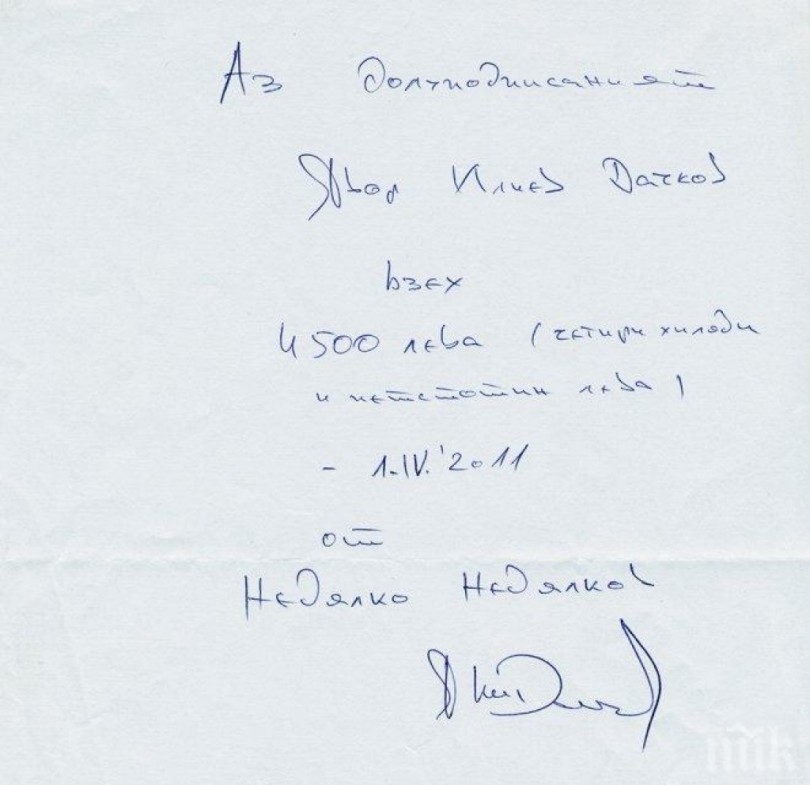 Аз долуподписаният
Явор Илиев Дачков
взех
4500 лева (четири хиляди
и петстотин лева)
- 1.IV.'2011
от
Недялко Недялков
пик